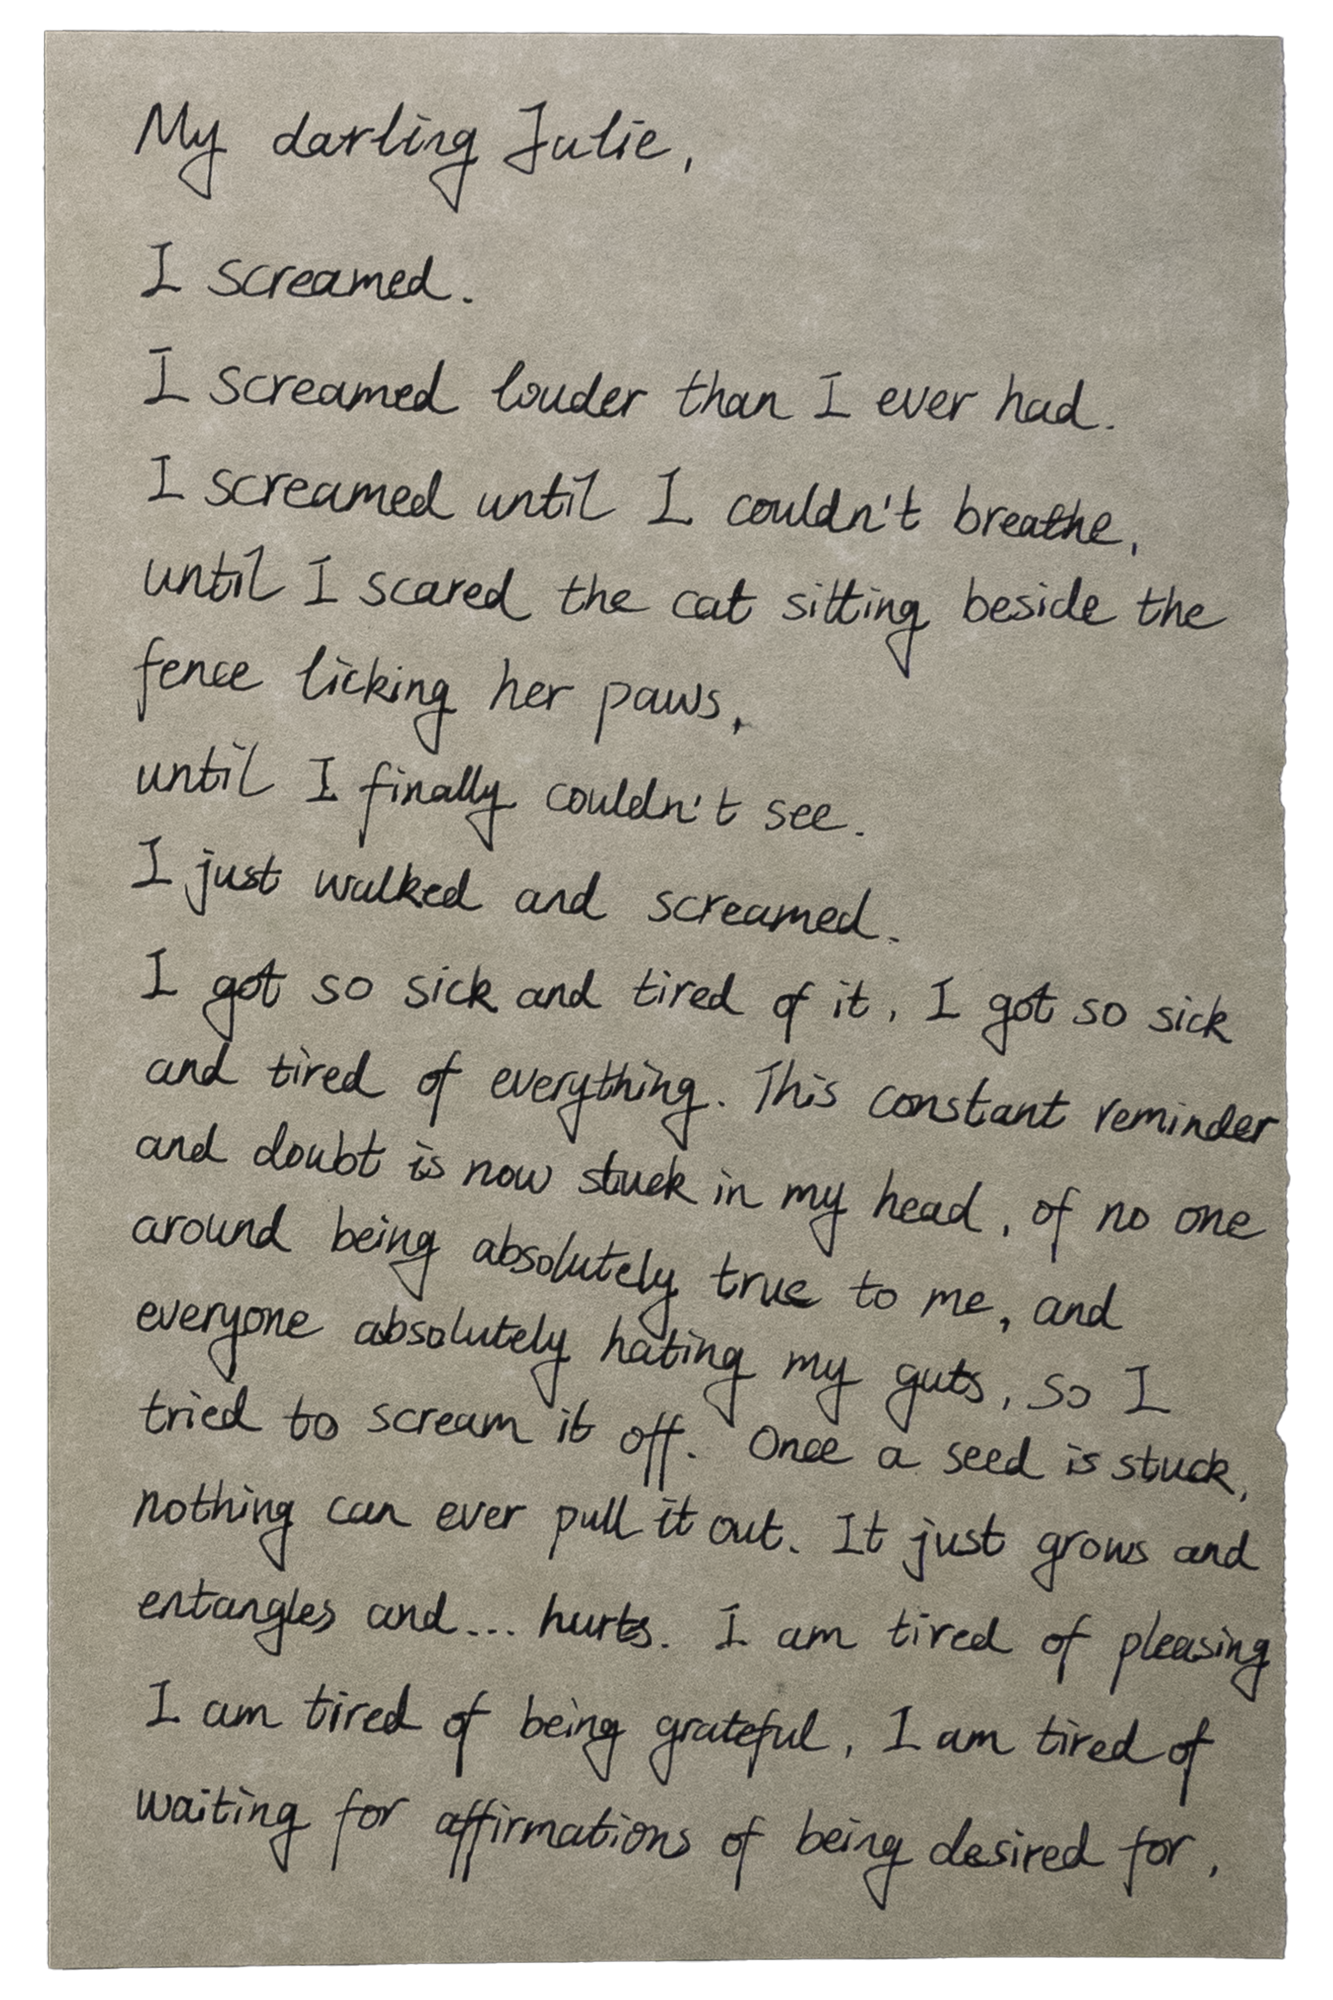 My darling Julie,
I screamed.
I screamed louder than I ever had.
I screamed until I couldn't breathe,
until I scared the cat sitting beside the
fence licking her paws,
until I finally couldn't see.
I just walked and screamed.
I got so sick and tired of it, I got so sick
and tired of everything. This constant reminder
and doubt is now stuck in my head, of no one
around being absolutely true to me, and
everyone absolutely hating my guts, so I
tried to scream it off. Once a seed is stuck,
nothing can ever pull it out. It just grows and
entangles and... hurts. I am tired of pleasing
I am tired of being grateful, I am tired of
waiting for affirmations of being desired for,